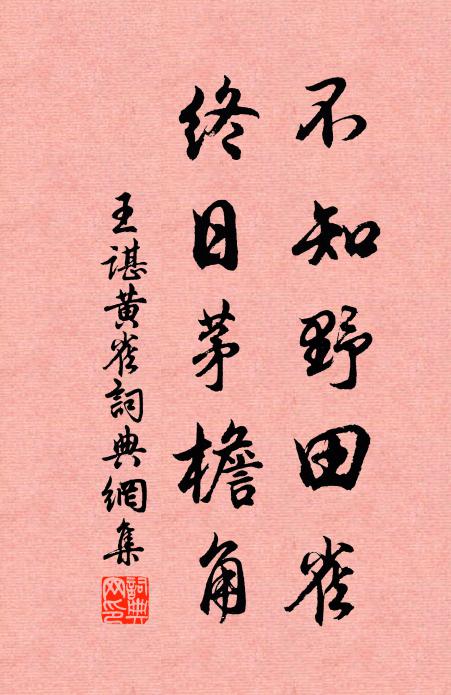 不知野田雀
終日茅檐角
王諶黄雀詞典網集
詞典网印